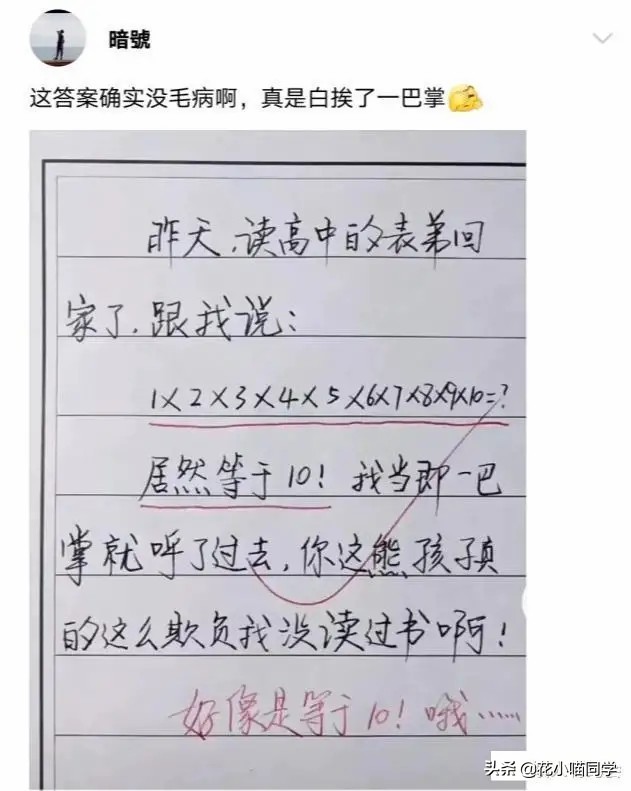 暗號
这答案确实没毛病啊，真是白挨了一巴掌
昨天,读高中的表弟回
家了,跟我说:
1×2×3×4×5×6×7×8×9×10=?
居然等于10! 我当即一巴
掌就呼了过去,你这熊孩子真
的这么欺负我没读过书啊!
好像是等于10! 哦……
头条 @花小喵同学